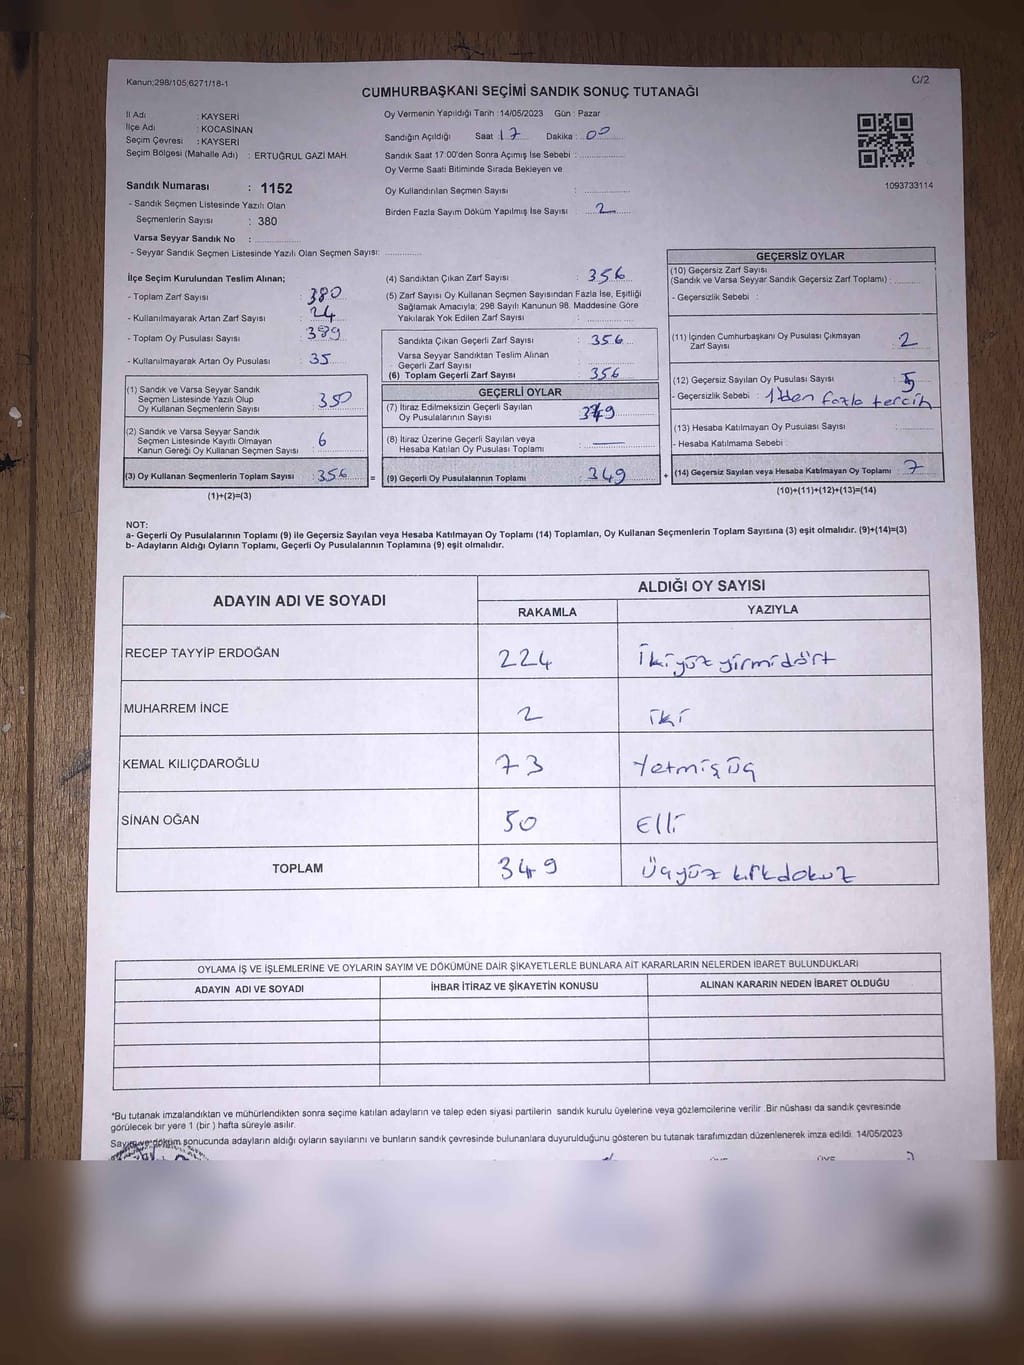 Kanun;298/105;6271/18-1
C/2
CUMHURBAŞKANI SEÇİMİ SANDIK SONUÇ TUTANAĞI
İl Adı : KAYSERİ
İlçe Adı : KOCASİNAN
Seçim Çevresi : KAYSERİ
Seçim Bölgesi (Mahalle Adı) : ERTUĞRUL GAZİ MAH.
Sandık Numarası : 1152
- Sandık Seçmen Listesinde Yazılı Olan
Seçmenlerin Sayısı : 380
Varsa Seyyar Sandık No :
- Seyyar Sandık Seçmen Listesinde Yazılı Olan Seçmen Sayısı:
Oy Vermenin Yapıldığı Tarih :14/05/2023 Gün : Pazar
Sandığın Açıldığı Saat 17 Dakika : 00
Sandık Saat 17:00'den Sonra Açımış İse Sebebi :
Oy Verme Saati Bitiminde Sırada Bekleyen ve
Oy Kullandırılan Seçmen Sayısı :
Birden Fazla Sayım Döküm Yapılmış İse Sayısı : 2
1093733114
İlçe Seçim Kurulundan Teslim Alınan;
- Toplam Zarf Sayısı : 380
- Kullanılmayarak Artan Zarf Sayısı : 24
- Toplam Oy Pusulası Sayısı : 389
- Kullanılmayarak Artan Oy Pusulası : 35
(1) Sandık ve Varsa Seyyar Sandık
Seçmen Listesinde Yazılı Olup
Oy Kullanan Seçmenlerin Sayısı : 350
(2) Sandık ve Varsa Seyyar Sandık
Seçmen Listesinde Kayıtlı Olmayan
Kanun Gereği Oy Kullanan Seçmen Sayısı : 6
(3) Oy Kullanan Seçmenlerin Toplam Sayısı : 356
(1)+(2)=(3)
(4) Sandıktan Çıkan Zarf Sayısı : 356
(5) Zarf Sayısı Oy Kullanan Seçmen Sayısından Fazla İse, Eşitliği
Sağlamak Amacıyla; 298 Sayılı Kanunun 98. Maddesine Göre
Yakılarak Yok Edilen Zarf Sayısı :
Sandıkta Çıkan Geçerli Zarf Sayısı : 356
Varsa Seyyar Sandıktan Teslim Alınan
Geçerli Zarf Sayısı :
(6) Toplam Geçerli Zarf Sayısı : 356
GEÇERLİ OYLAR
(7) İtiraz Edilmeksizin Geçerli Sayılan
Oy Pusulalarının Sayısı : 349
(8) İtiraz Üzerine Geçerli Sayılan veya
Hesaba Katılan Oy Pusulası Toplamı :
= (9) Geçerli Oy Pusulalarının Toplamı : 349 +
GEÇERSİZ OYLAR
(10) Geçersiz Zarf Sayısı
(Sandık ve Varsa Seyyar Sandık Geçersiz Zarf Toplamı) :
- Geçersizlik Sebebi :
(11) İçinden Cumhurbaşkanı Oy Pusulası Çıkmayan
Zarf Sayısı : 2
(12) Geçersiz Sayılan Oy Pusulası Sayısı : 5
- Geçersizlik Sebebi : 1'den fazla tercih
(13) Hesaba Katılmayan Oy Pusulası Sayısı :
- Hesaba Katılmama Sebebi :
(14) Geçersiz Sayılan veya Hesaba Katılmayan Oy Toplamı : 7
(10)+(11)+(12)+(13)=(14)
NOT:
a- Geçerli Oy Pusulalarının Toplamı (9) ile Geçersiz Sayılan veya Hesaba Katılmayan Oy Toplamı (14) Toplamları, Oy Kullanan Seçmenlerin Toplam Sayısına (3) eşit olmalıdır. (9)+(14)=(3)
b- Adayların Aldığı Oyların Toplamı, Geçerli Oy Pusulalarının Toplamına (9) eşit olmalıdır.
ADAYIN ADI VE SOYADI
ALDIĞI OY SAYISI
RAKAMLA YAZIYLA
RECEP TAYYİP ERDOĞAN 224 İkiyüz yirmidört
MUHARREM İNCE 2 iki
KEMAL KILIÇDAROĞLU 73 Yetmişüç
SİNAN OĞAN 50 Elli
TOPLAM 349 Üçyüz kırkdokuz
OYLAMA İŞ VE İŞLEMLERİNE VE OYLARIN SAYIM VE DÖKÜMÜNE DAİR ŞİKAYETLERLE BUNLARA AİT KARARLARIN NELERDEN İBARET BULUNDUKLARI
ADAYIN ADI VE SOYADI İHBAR İTİRAZ VE ŞİKAYETİN KONUSU ALINAN KARARIN NEDEN İBARET OLDUĞU
*Bu tutanak imzalandıktan ve mühürlendikten sonra seçime katılan adayların ve talep eden siyasi partilerin sandık kurulu üyelerine veya gözlemcilerine verilir .Bir nüshası da sandık çevresinde
görülecek bir yere 1 (bir ) hafta süreyle asılır.
Sayım ve döküm sonucunda adayların aldığı oyların sayılarını ve bunların sandık çevresinde bulunanlara duyurulduğunu gösteren bu tutanak tarafımızdan düzenlenerek imza edildi. 14/05/2023